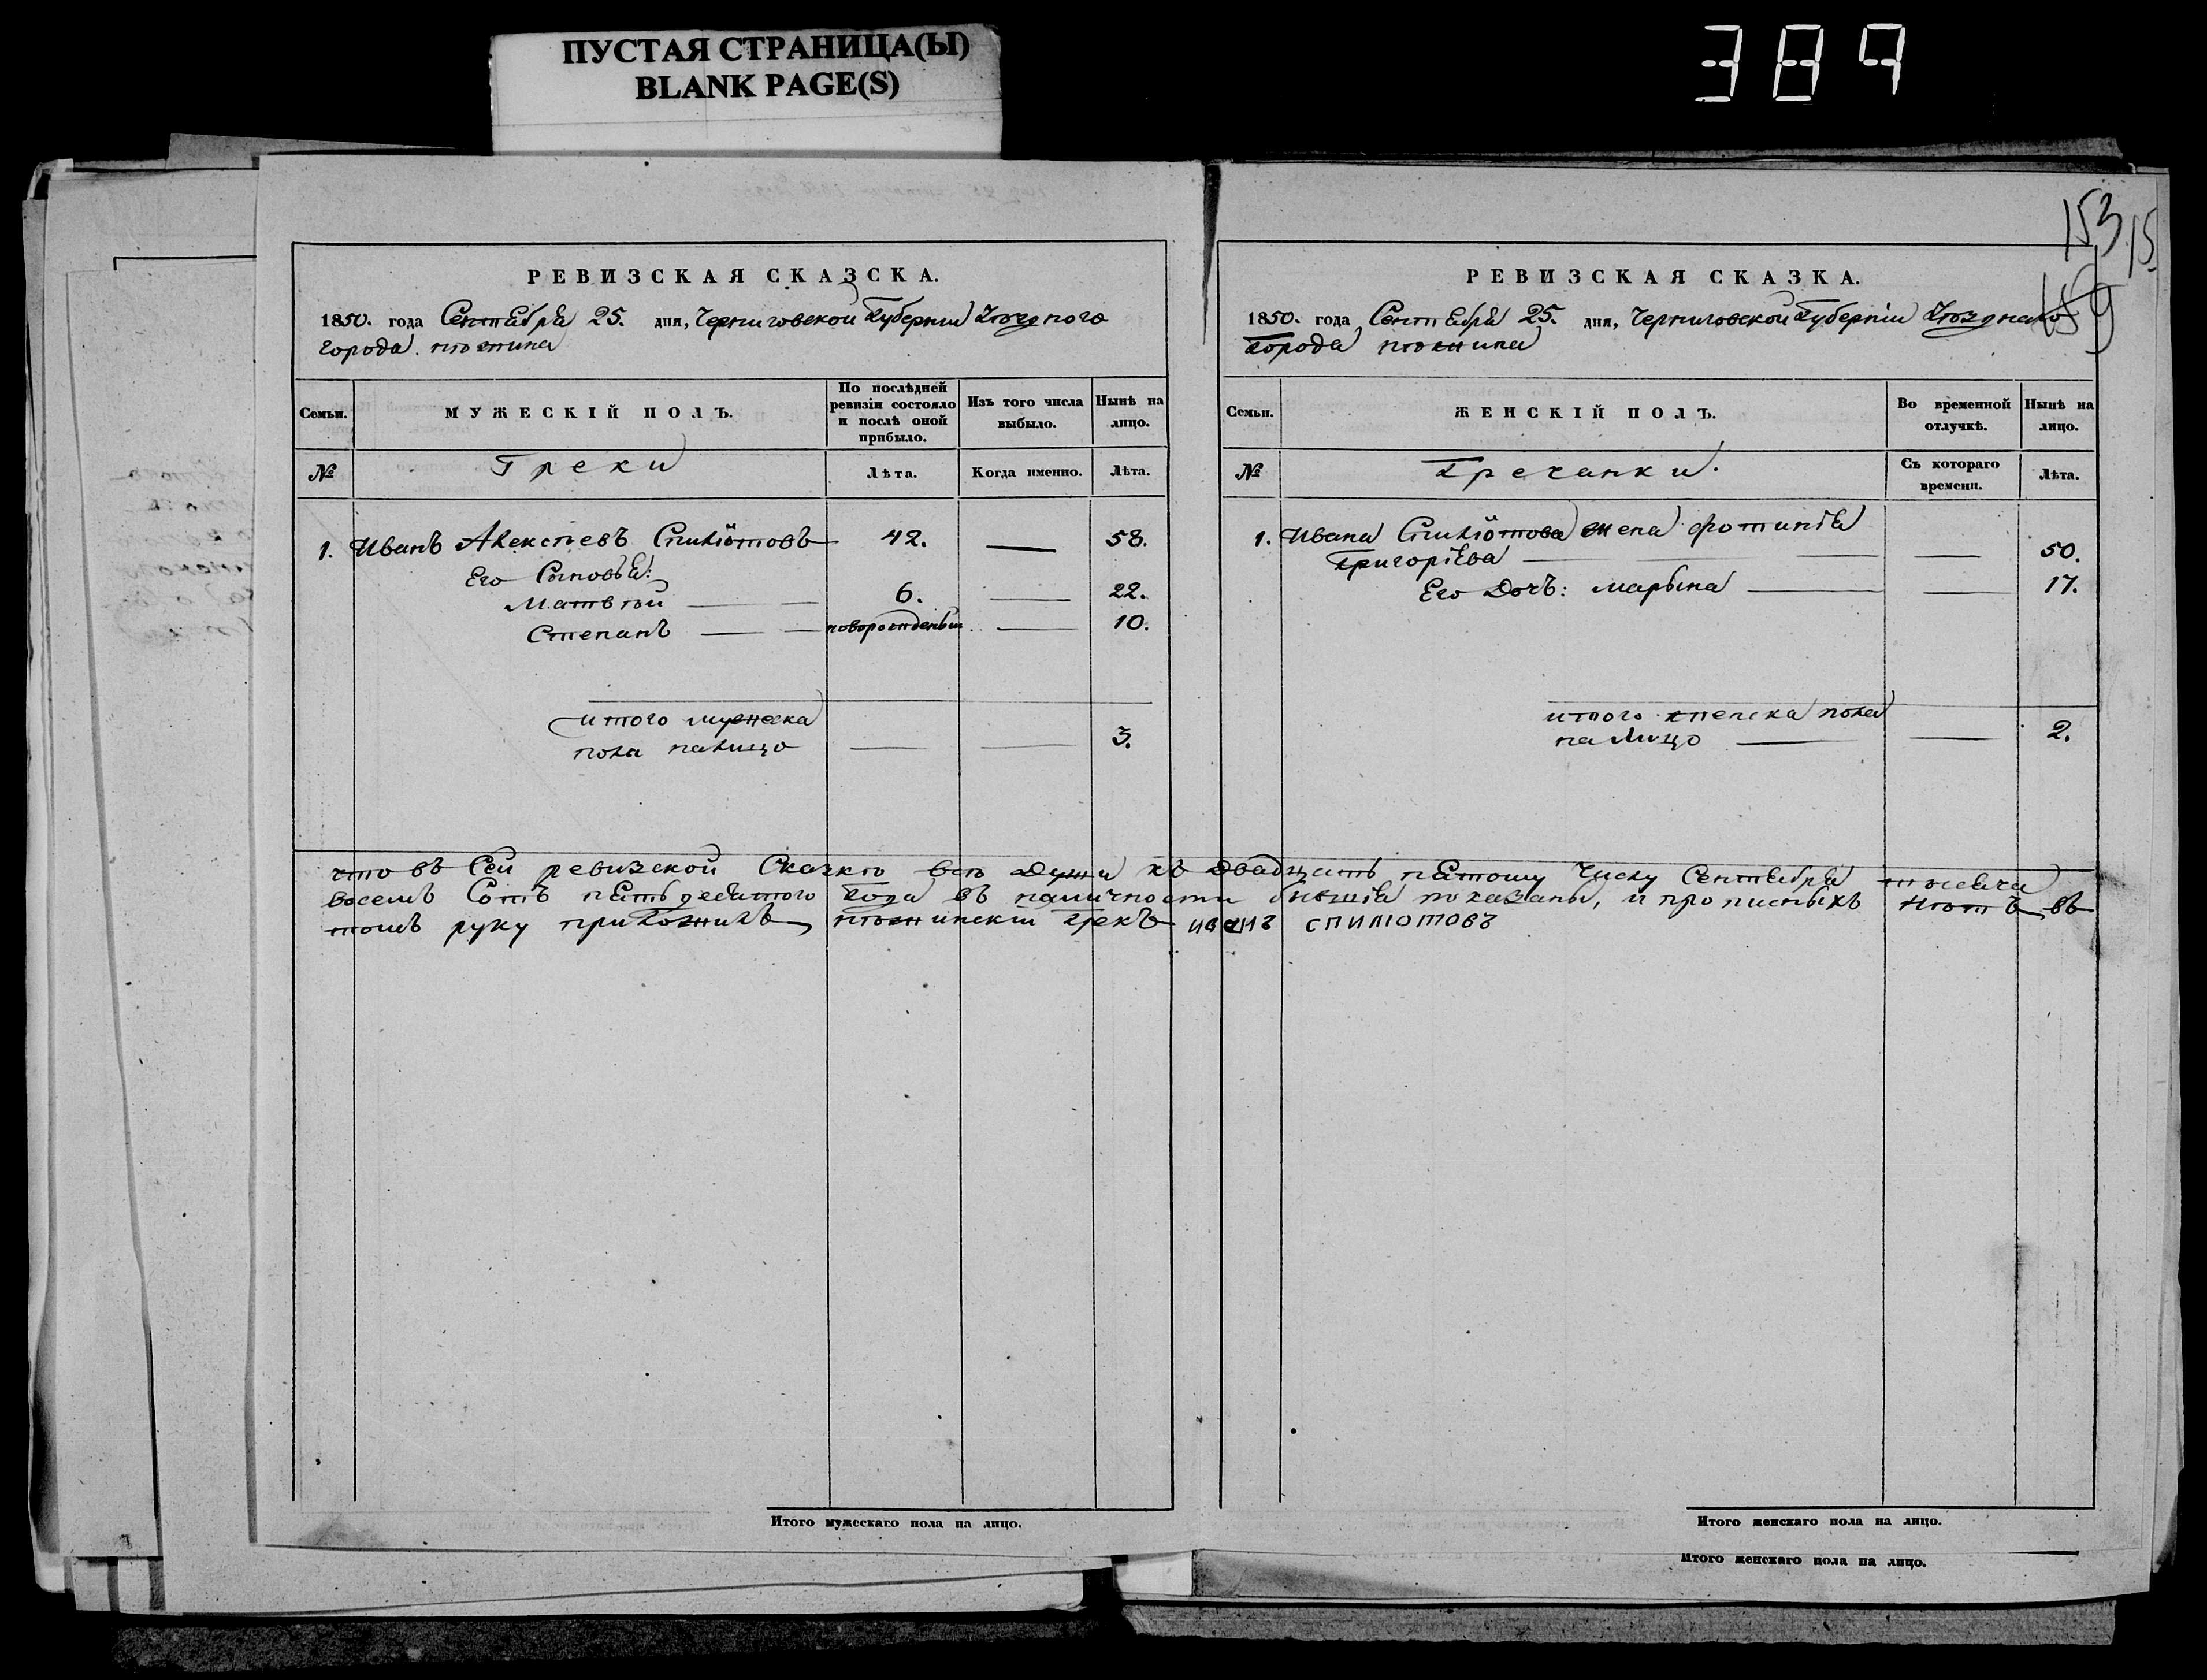 ПУСТАЯ СТРАНИЦА(Ы)
BLANK PAGE(S)
389
153
15
159
РЕВИЗСКАЯ СКАЗСКА.
1850. года Сентебря 25. дня, Черниговской Губернии Уѣздного
города нѣжина
Семьи.
МУЖЕСКІЙ ПОЛЪ.
По послѣдней ревизіи состояло и послѣ оной прибыло.
Изъ того числа выбыло.
Нынѣ на лицо.
№
Греки
Лѣта.
Когда именно.
Лѣта.
1. Иванъ Алексѣевъ Спиліотовъ 42. — 58.
Его Сыновья:
Матвѣй — 6. — 22.
Степанъ — новорожденый — 10.
итого мужеска
пола налицо — — 3.
РЕВИЗСКАЯ СКАЗКА.
1850. года Сентебря 25. дня, Черниговской Губерніи Уѣзднаго
Города нѣжина
Семьи.
ЖЕНСКІЙ ПОЛЪ.
Во временной отлучкѣ.
Нынѣ на лицо.
№
Гречанки.
Съ котораго времени.
Лѣта.
1. Ивана Спиліотова жена фотинія
Григоріева — — 50.
Его Дочь: марына — — 17.
итого женска пола
на Лицо — — 2.
что въ Сей ревизской Сказкѣ всѣ Души къ Двадцать пятому Числу Сентебря тысеча
восемъ Сотъ пятьдесятого Года въ наличности бывшія показаны, и прописныхъ Нѣтъ въ
томъ руку приложилъ нѣжинскій Грекъ иванъ спилиотовъ
Итого мужескаго пола на лицо.
Итого женскаго пола на лицо.
Итого женскаго пола на лицо.